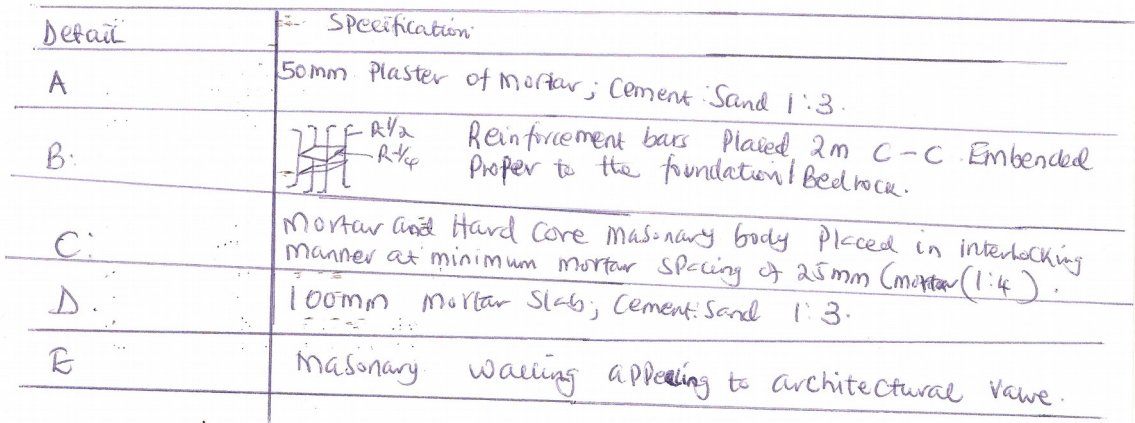 Detail Specification
A 50mm Plaster of Mortar; Cement:Sand 1:3.
B: R1/2 Reinforcement bars Placed 2m C-C Embended
R1/4 Proper to the foundation/Bedrock.
C: Mortar and Hard core masonary body Placed in interlocking
manner at minimum mortar spacing of 25mm (mortar(1:4).
D. 100mm mortar Slab; Cement:Sand 1:3.
E masonary walling appealing to architectural value.